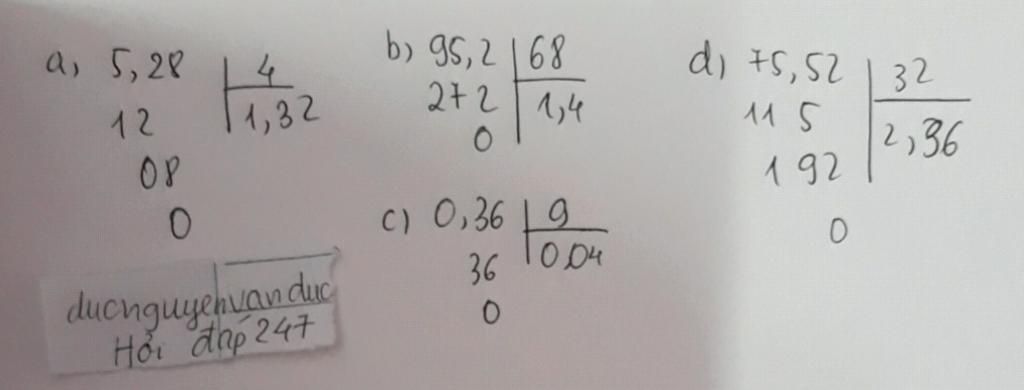 a) 5,28 | 4
12 | 1,32
08
0
b) 95,2 | 68
272 | 1,4
0
c) 0,36 | 9
36 | 0,04
0
d) 75,52 | 32
11 5 | 2,36
1 92
0
ducnguyenvanduc
Hỏi đáp 247